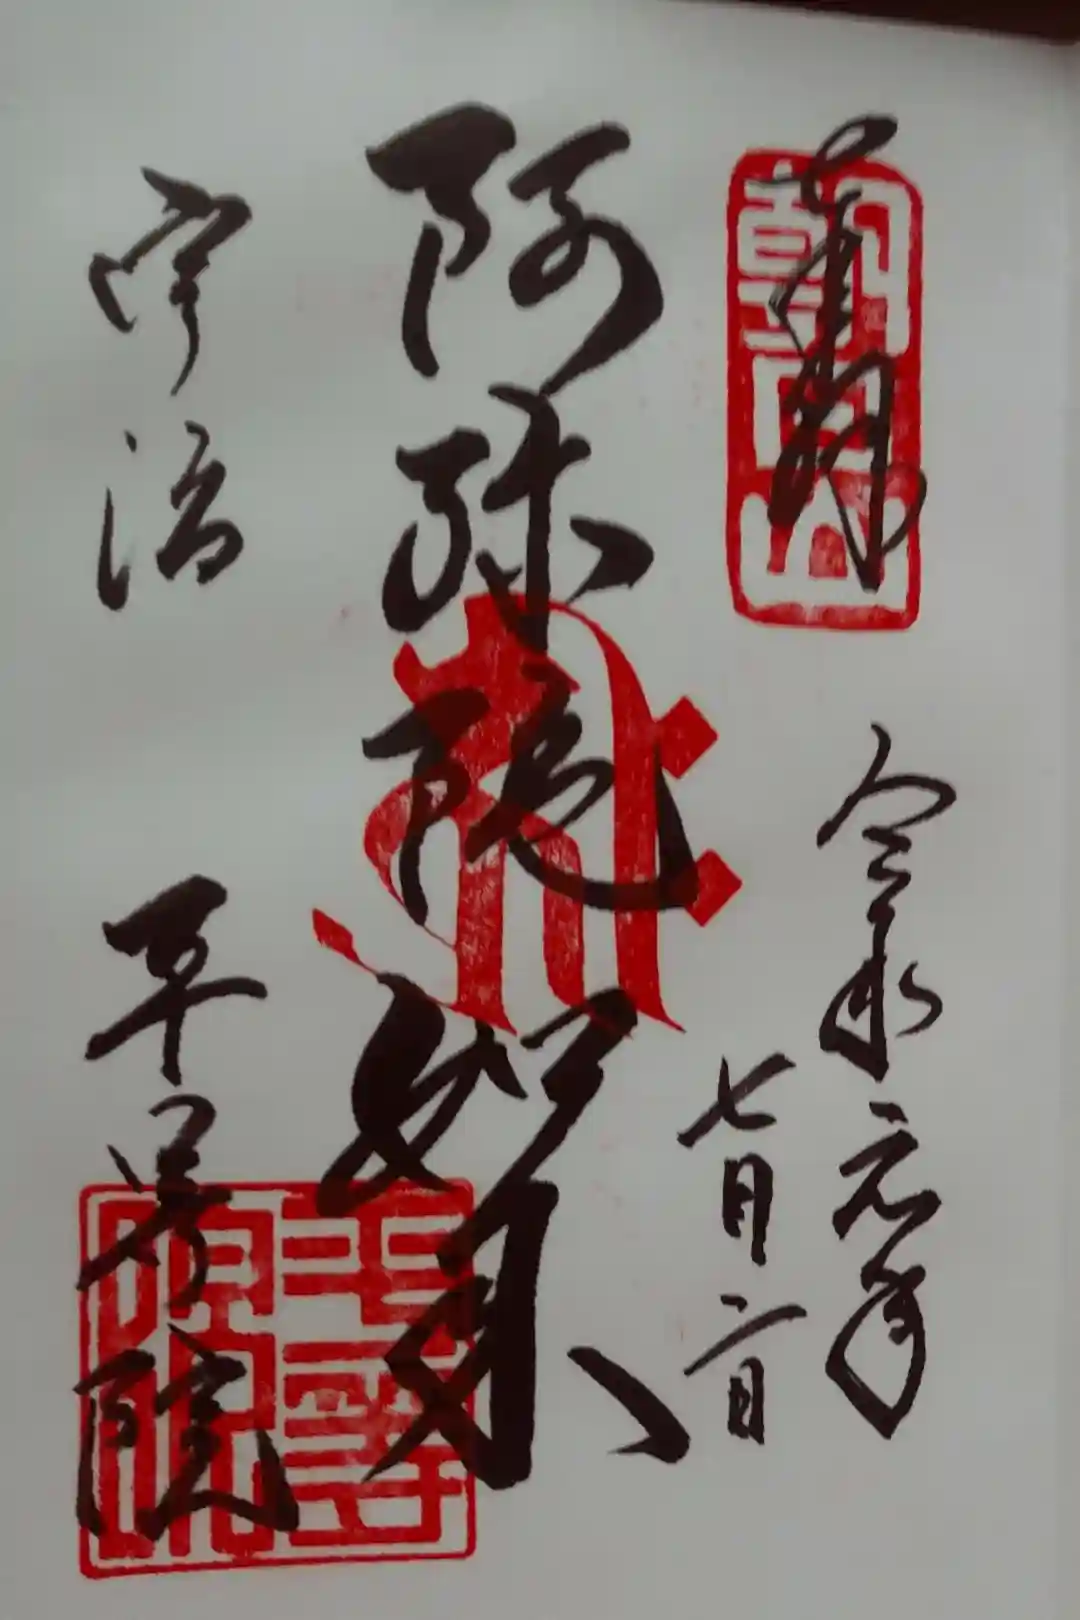 奉拝
朝日山
令和元年
七月二日
阿弥陀如来
宇治
平等院
平等院印